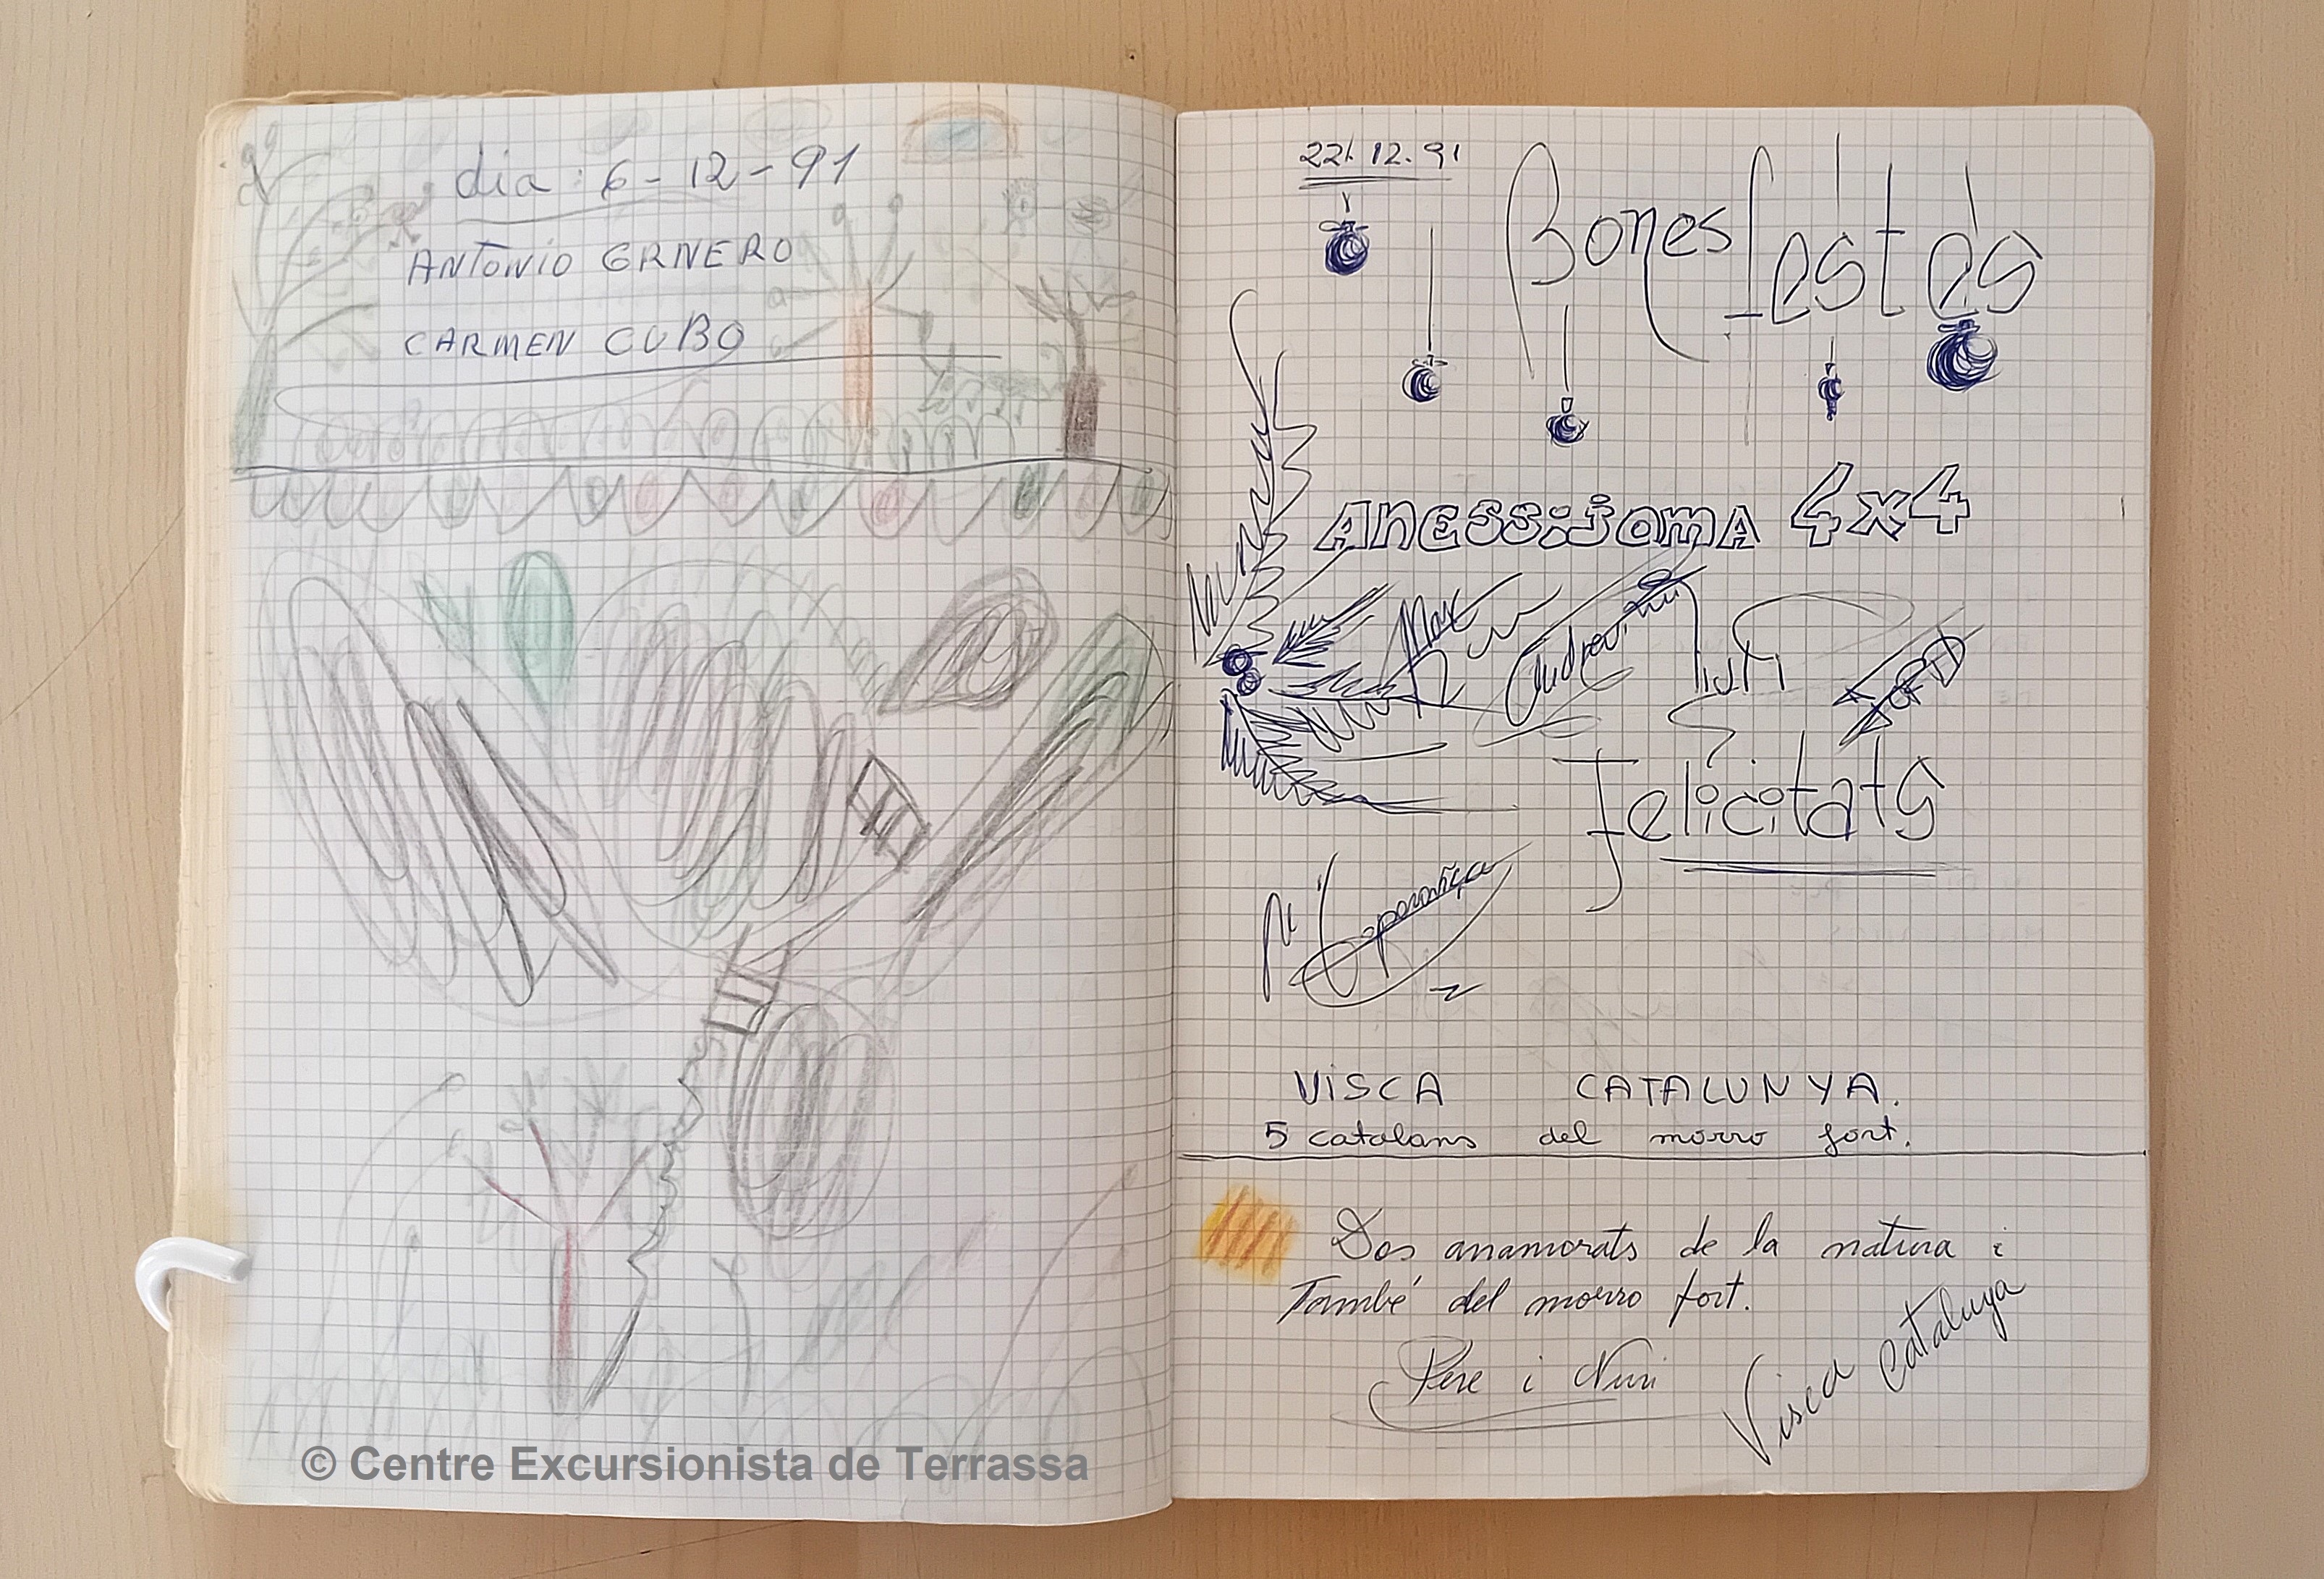 dia: 6-12-91
ANTONIO GRNERO
CARMEN CUBO
© Centre Excursionista de Terrassa
22.12.91
Bones festes
ANESS:JOMA 4x4
Max
Felicitats
Mª Esperança
VISCA CATALUNYA.
5 catalans del morro fort.
Dos anamorats de la natura i
També del morro fort.
Pere i Nuri
Visca Cataluya